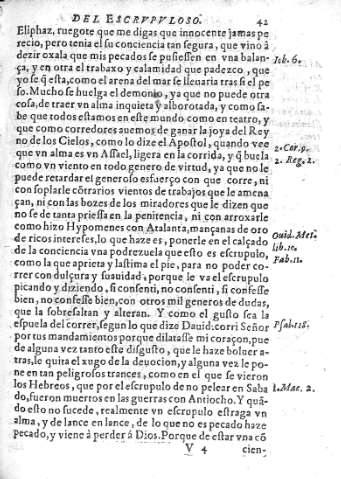 DEL ESCRVPVLOSO. 42
Eliphaz, ruegote que me digas que innocente jamas pe
recio, pero tenia el su conciencia tan segura, que vino à
dezir oxala que mis pecados se pusiessen en vna balan-
ça, y en otra el trabaxo y calamidad que padezco, que
yo se q̃ esta, como el arena del mar se lleuaria tras si el pe
so. Mucho se huelga el demonio, ya que no puede otra
cosa, de traer vn alma inquieta y alborotada, y como sa-
be que todos estamos en este mundo como en teatro, y
que como corredores auemos de ganar la joya del Rey
no de los Cielos, como lo dize el Apostol, quando vee
que vn alma es vn Assael, ligera en la corrida, y q̃ buela
como vn viento en todo genero de virtud, ya que no le
puede retardar el generoso esfuerço con que corre, ni
con soplarle cõtrarios vientos de trabajos que le amena
çan, ni con las bozes de los miradores que le dizen que
no se de tanta priessa en la penitencia, ni con arroxarle
como hizo Hypomenes con Atalanta, mançanas de oro
de ricos interesses, lo que haze es, ponerle en el calçado
de la conciencia vna podrezuela que esto es escrupulo,
como la que aprieta y lastima el pie, para no poder co-
rrer con dulçura y suauidad, porque le va el escrupulo
picando y diziendo, si consenti, no consenti, si confesse
bien, no confesse bien, con otros mil generos de dudas,
que la sobresaltan y alteran. Y como el gusto sea la
espuela del correr, segun lo que dize Dauid: corri Señor
por tus mandamientos porque dilataste mi coraçon, pue
de alguna vez tanto este disgusto, que le haze boluer a-
tras, le quita el xugo de la deuocion, y algunа vez le po-
ne en tan peligrosos trances, como en el que se vieron
los Hebreos, que por el escrupulo de no pelear en Saba
do, fueron muertos en las guerras con Antiocho. Y quã-
do esto no sucede, realmente vn escrupulo estraga vn
alma, y de lance en lance, de lo que no es pecado haze
pecado, y viene à perder à Dios. Porque de estar vna cõ
V 4 cien-
Iob. 6.
2. Cor. 9.
2. Reg. 2.
Ouid. Met.
lib. 10.
Fab. 11.
Psal. 118.
1. Mac. 2.